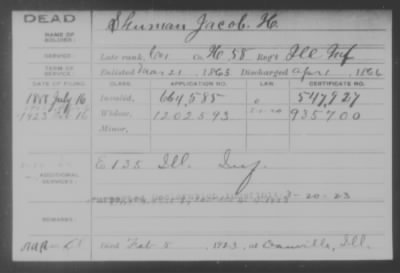 DEAD
NAME OF SOLDIER: Shuman Jacob. H.
SERVICE: Late rank, Co. H 58 Reg't Ill Inf
TERM OF SERVICE: Enlisted Mar 21, 1865 Discharged Apr 1, 1866
DATE OF FILING. CLASS. APPLICATION NO. LAW. CERTIFICATE NO.
1888 July 16 Invalid, 664,585 547,927
1923 16 Widow, 1202593 935700
Minor,
ADDITIONAL SERVICES: E 135 Ill. Inf.
3-20-23
REMARKS:
Died Feb 5, 1923, at Danville, Ill.